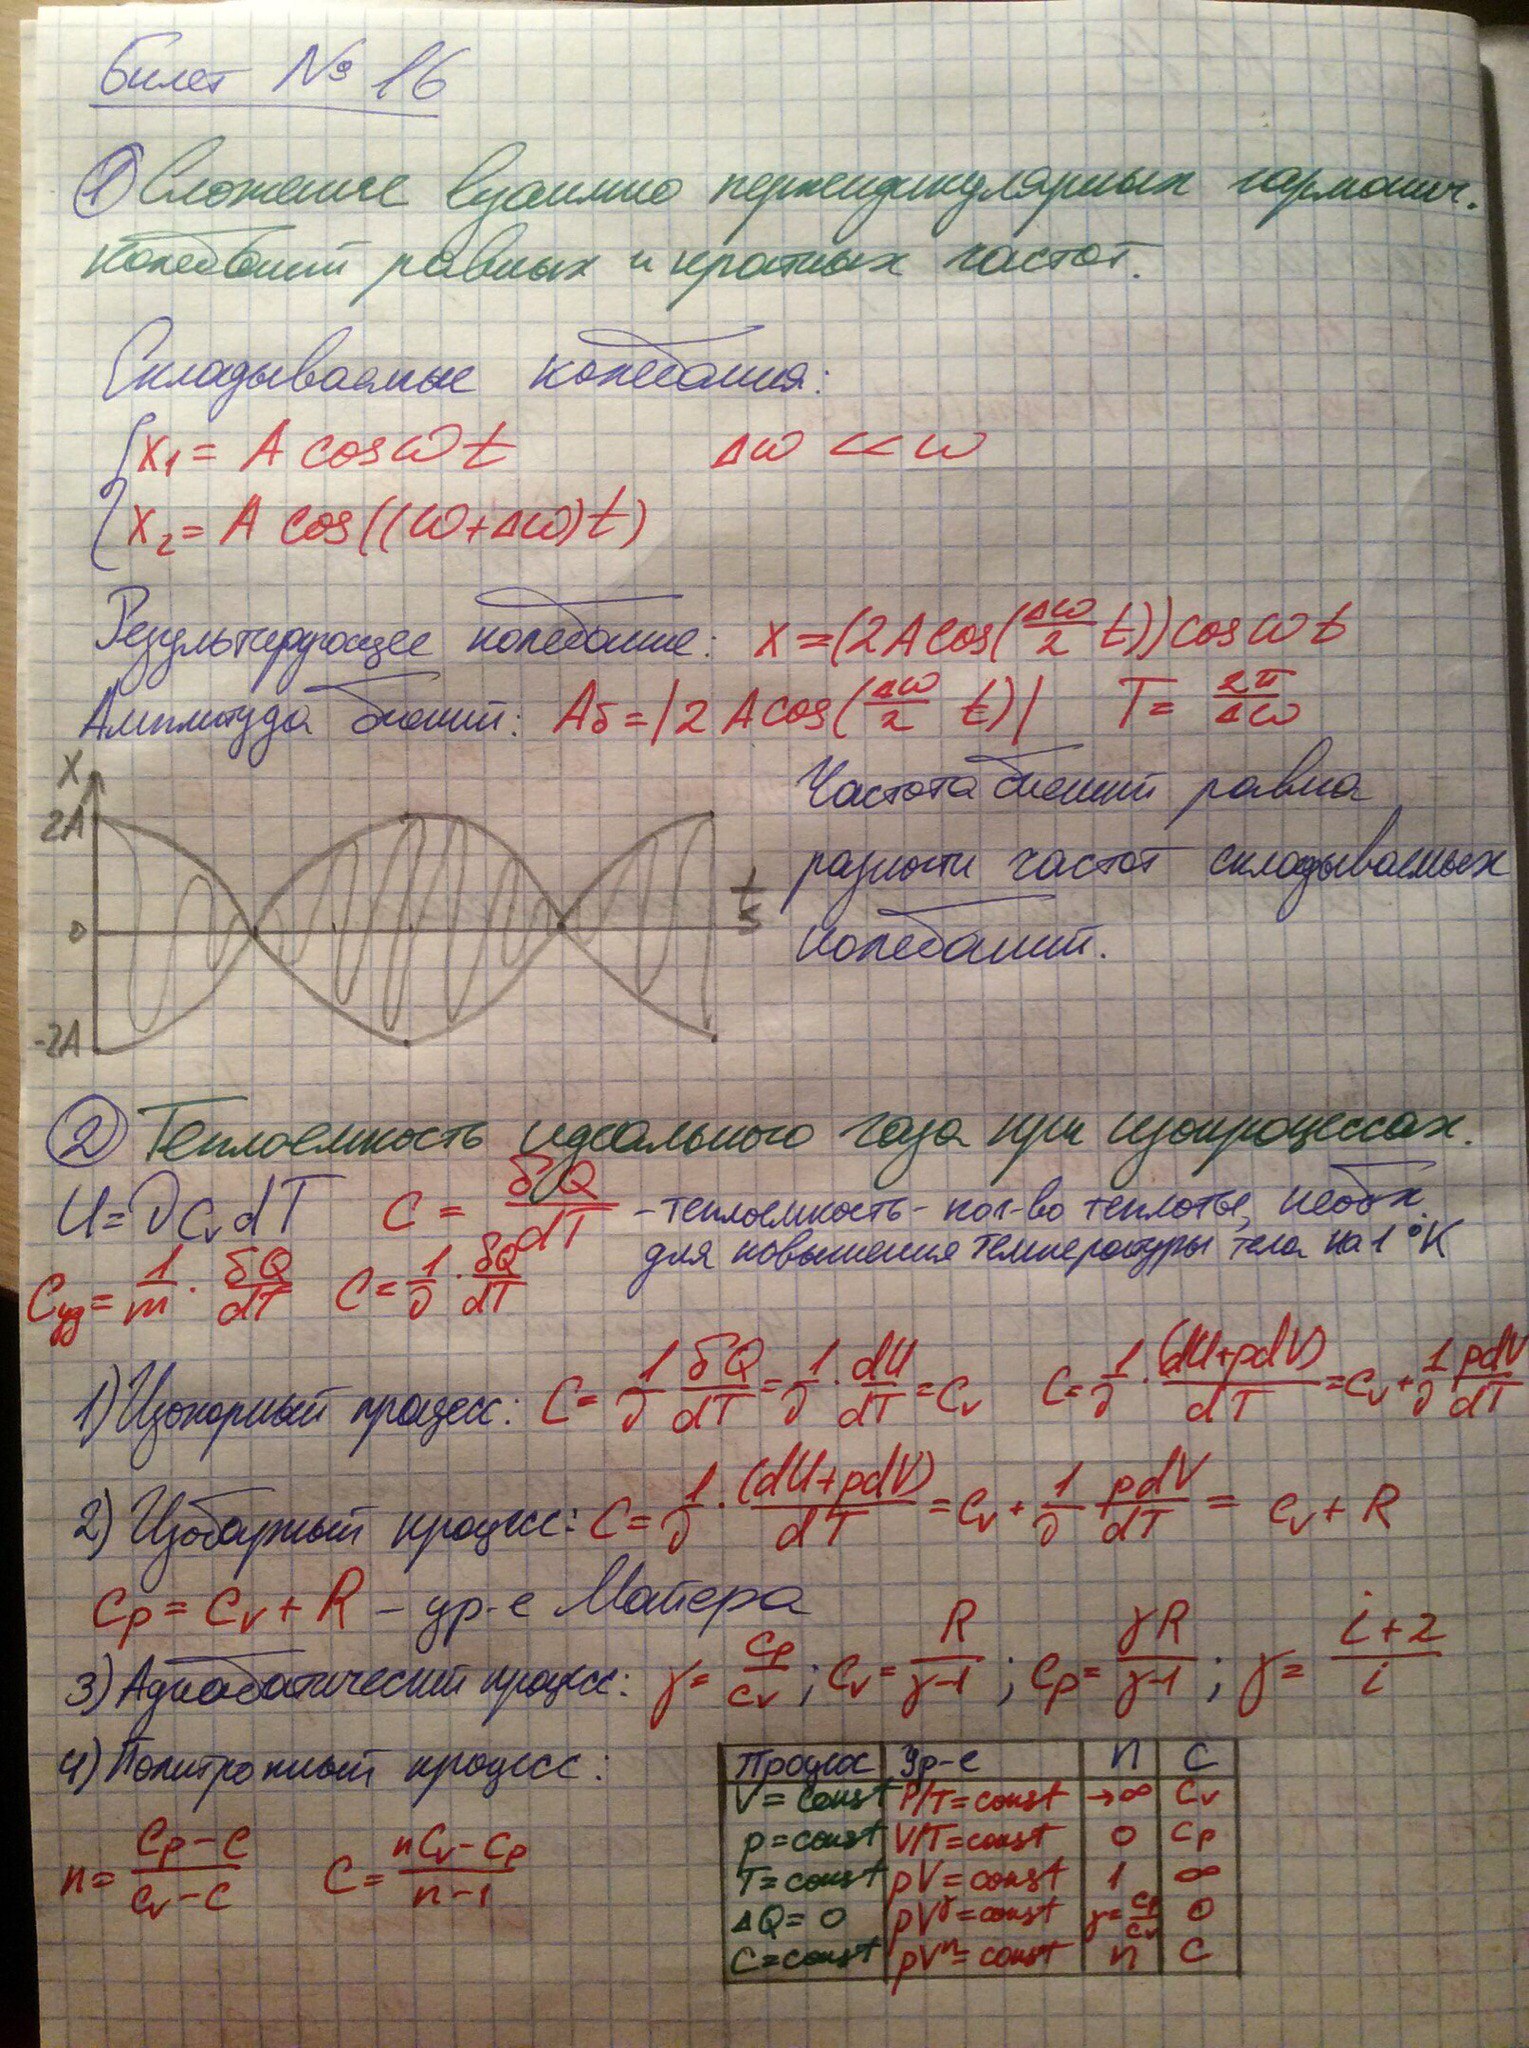 Билет № 16
① Сложение взаимно перпендикулярных гармонич.
колебаний равных и кратных частот.
Складываемые колебания:
x₁ = A cos ωt    Δω << ω
x₂ = A cos((ω+Δω)t)
Результирующее колебание: x = (2A cos(Δω/2 t)) cos ωt
Амплитуда биений: Aб = |2A cos(Δω/2 t)|    T = 2π/Δω
x
2A
0
-2A
t
s
Частота биений равна
разности частот складываемых
колебаний.
② Теплоемкость идеального газа при изопроцессах.
U = νC_v dT    C = δQ/dT - теплоемкость - кол-во теплоты, необх.
для повышения температуры тела на 1°K
C_уд = 1/m · δQ/dT    C = 1/ν · δQ/dT
1) Изохорный процесс: C = 1/ν δQ/dT = 1/ν · dU/dT = C_v    C = 1/ν · (dU+pdV)/dT = C_v + 1/ν pdV/dT
2) Изобарный процесс: C = 1/ν · (dU+pdV)/dT = C_v + 1/ν pdV/dT = C_v + R
C_p = C_v + R - ур-е Майера
3) Адиабатический процесс: γ = C_p/C_v ; C_v = R/(γ-1) ; C_p = γR/(γ-1) ; γ = (i+2)/i
4) Политропный процесс:
n = (C_p - C)/(C_v - C)    C = (nC_v - C_p)/(n-1)
Процесс Ур-е n C
V = const P/T = const →∞ C_v
p = const V/T = const 0 C_p
T = const pV = const 1 ∞
ΔQ = 0 pV^γ = const γ = C_p/C_v 0
C = const pVⁿ = const n C